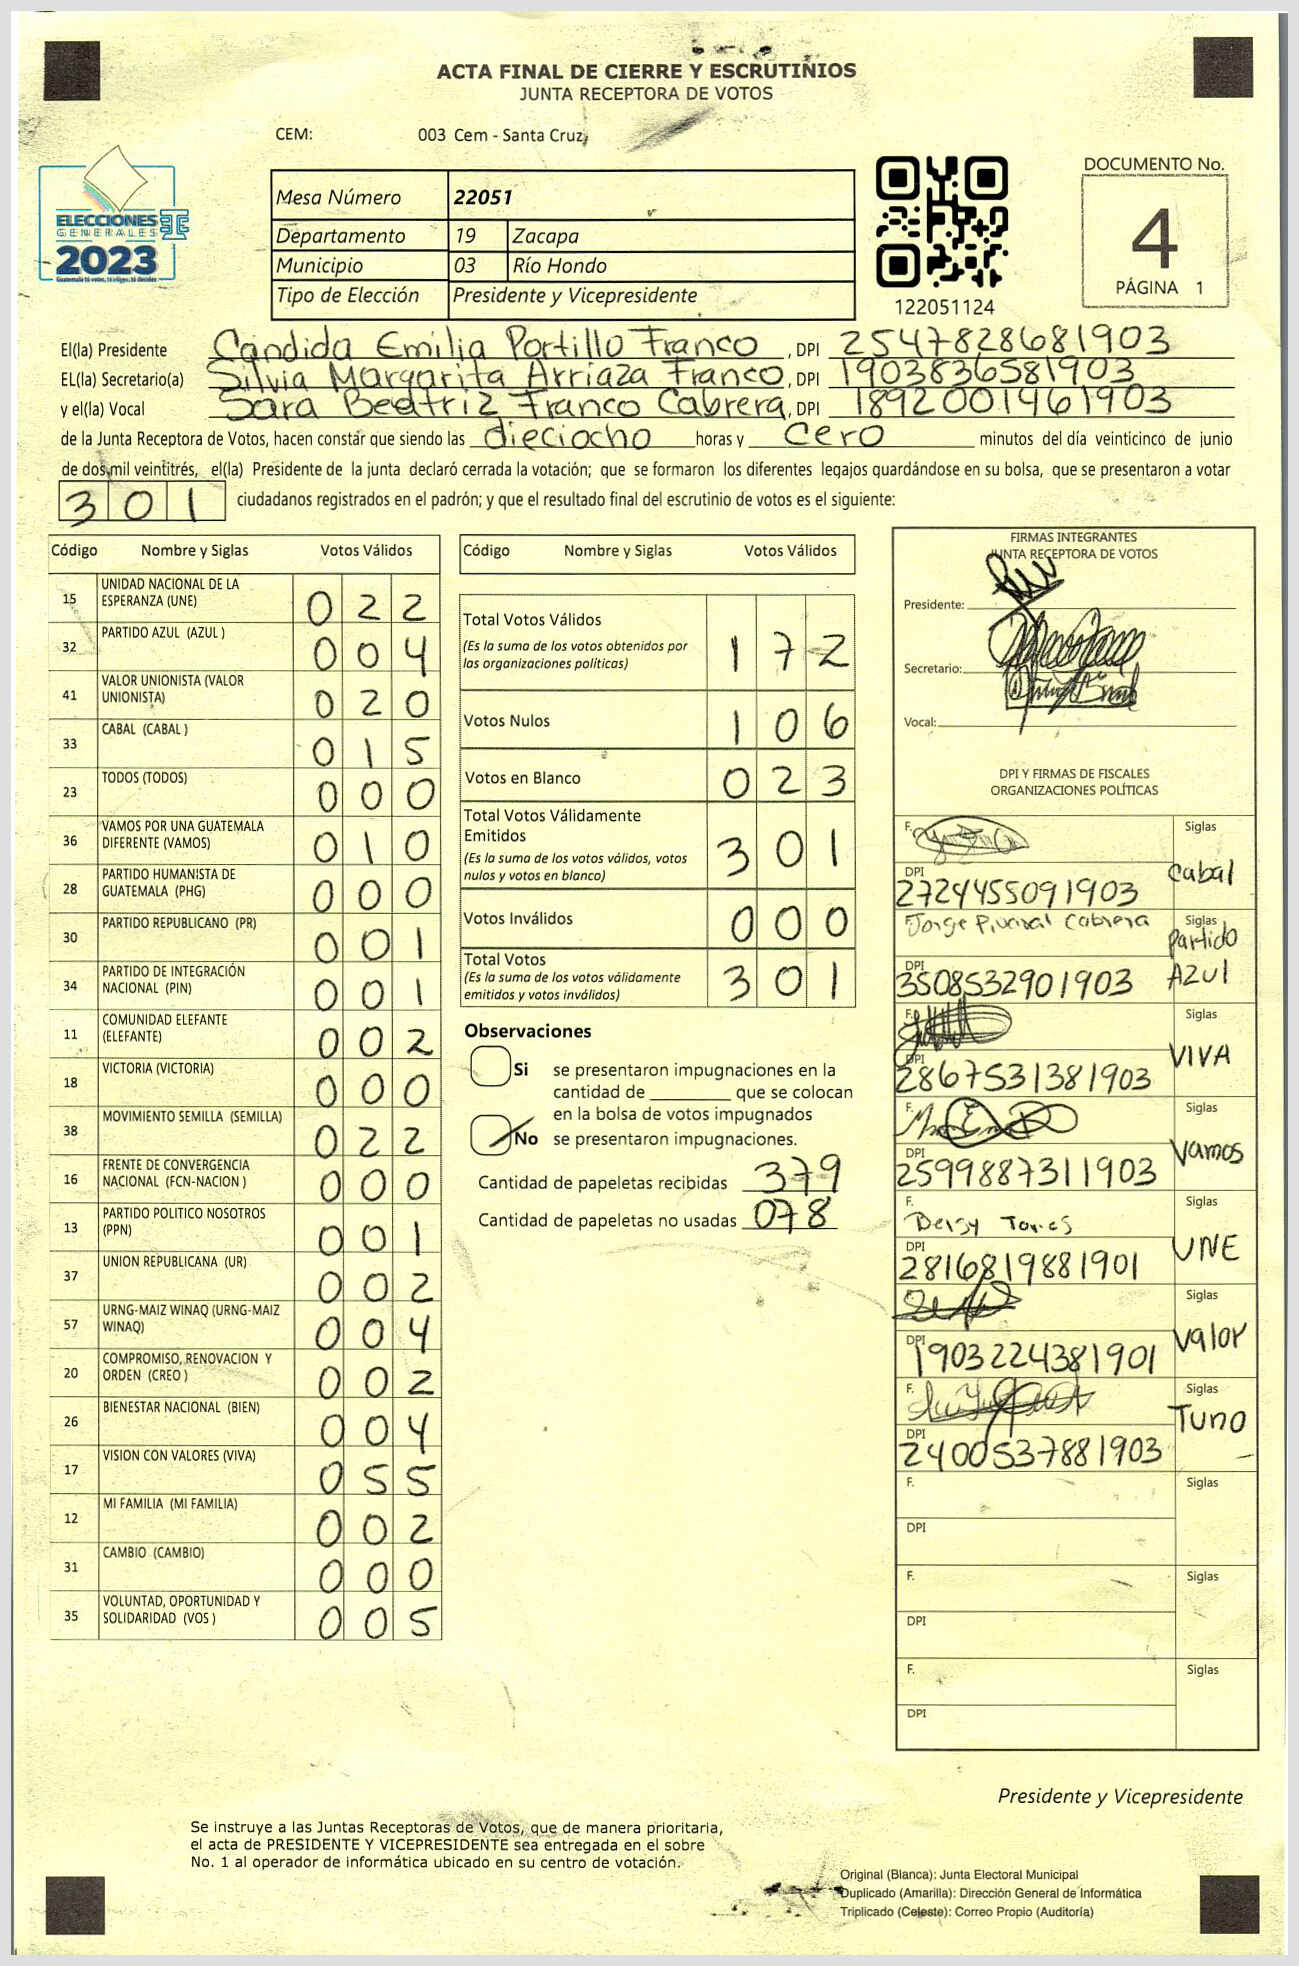 ACTA FINAL DE CIERRE Y ESCRUTINIOS
JUNTA RECEPTORA DE VOTOS
CEM: 003 Cem - Santa Cruz
ELECCIONES
GENERALES
2023
Mesa Número 22051
Departamento 19 Zacapa
Municipio 03 Río Hondo
Tipo de Elección Presidente y Vicepresidente
122051124
DOCUMENTO No.
4
PÁGINA 1
El(la) Presidente Candida Emilia Portillo Franco, DPI 2547828681903
EL(la) Secretario(a) Silvia Margarita Arriaza Franco, DPI 1903836581903
y el(la) Vocal Sara Beatriz Franco Cabrera, DPI 1892001461903
de la Junta Receptora de Votos, hacen constar que siendo las dieciocho horas y cero minutos del día veinticinco de junio
de dos mil veintitrés, el(la) Presidente de la junta declaró cerrada la votación; que se formaron los diferentes legajos quardándose en su bolsa, que se presentaron a votar
301 ciudadanos registrados en el padrón; y que el resultado final del escrutinio de votos es el siguiente:
Código Nombre y Siglas Votos Válidos
15 UNIDAD NACIONAL DE LA ESPERANZA (UNE) 022
32 PARTIDO AZUL (AZUL ) 004
41 VALOR UNIONISTA (VALOR UNIONISTA) 020
33 CABAL (CABAL ) 015
23 TODOS (TODOS) 000
36 VAMOS POR UNA GUATEMALA DIFERENTE (VAMOS) 010
28 PARTIDO HUMANISTA DE GUATEMALA (PHG) 000
30 PARTIDO REPUBLICANO (PR) 001
34 PARTIDO DE INTEGRACIÓN NACIONAL (PIN) 001
11 COMUNIDAD ELEFANTE (ELEFANTE) 002
18 VICTORIA (VICTORIA) 000
38 MOVIMIENTO SEMILLA (SEMILLA) 022
16 FRENTE DE CONVERGENCIA NACIONAL (FCN-NACION ) 000
13 PARTIDO POLITICO NOSOTROS (PPN) 001
37 UNION REPUBLICANA (UR) 002
57 URNG-MAIZ WINAQ (URNG-MAIZ WINAQ) 004
20 COMPROMISO, RENOVACION Y ORDEN (CREO ) 002
26 BIENESTAR NACIONAL (BIEN) 004
17 VISION CON VALORES (VIVA) 055
12 MI FAMILIA (MI FAMILIA) 002
31 CAMBIO (CAMBIO) 000
35 VOLUNTAD, OPORTUNIDAD Y SOLIDARIDAD (VOS ) 005
Código Nombre y Siglas Votos Válidos
Total Votos Válidos 172
(Es la suma de los votos obtenidos por
las organizaciones políticas)
Votos Nulos 106
Votos en Blanco 023
Total Votos Válidamente
Emitidos 301
(Es la suma de los votos válidos, votos
nulos y votos en blanco)
Votos Inválidos 000
Total Votos 301
(Es la suma de los votos válidamente
emitidos y votos inválidos)
Observaciones
Si se presentaron impugnaciones en la
cantidad de ________ que se colocan
en la bolsa de votos impugnados
No se presentaron impugnaciones.
Cantidad de papeletas recibidas 379
Cantidad de papeletas no usadas 078
FIRMAS INTEGRANTES
JUNTA RECEPTORA DE VOTOS
Presidente:
Secretario:
Vocal:
DPI Y FIRMAS DE FISCALES
ORGANIZACIONES POLÍTICAS
F. Siglas
Cabal
DPI 2724455091903
F. Jorge Cabrera Siglas
Partido
AZUL
DPI 3508532901903
F. Siglas
VIVA
DPI 2867531381903
F. Siglas
Vamos
DPI 2599887311903
F. Siglas
UNE
DPI 2816819881901
Siglas
Valor
DPI 1903224381901
F. Siglas
Tuno
DPI 2400537881903
F. Siglas
DPI
F. Siglas
DPI
F. Siglas
DPI
Presidente y Vicepresidente
Se instruye a las Juntas Receptoras de Votos, que de manera prioritaria,
el acta de PRESIDENTE Y VICEPRESIDENTE sea entregada en el sobre
No. 1 al operador de informática ubicado en su centro de votación.
Original (Blanca): Junta Electoral Municipal
Duplicado (Amarilla): Dirección General de Informática
Triplicado (Celeste): Correo Propio (Auditoría)